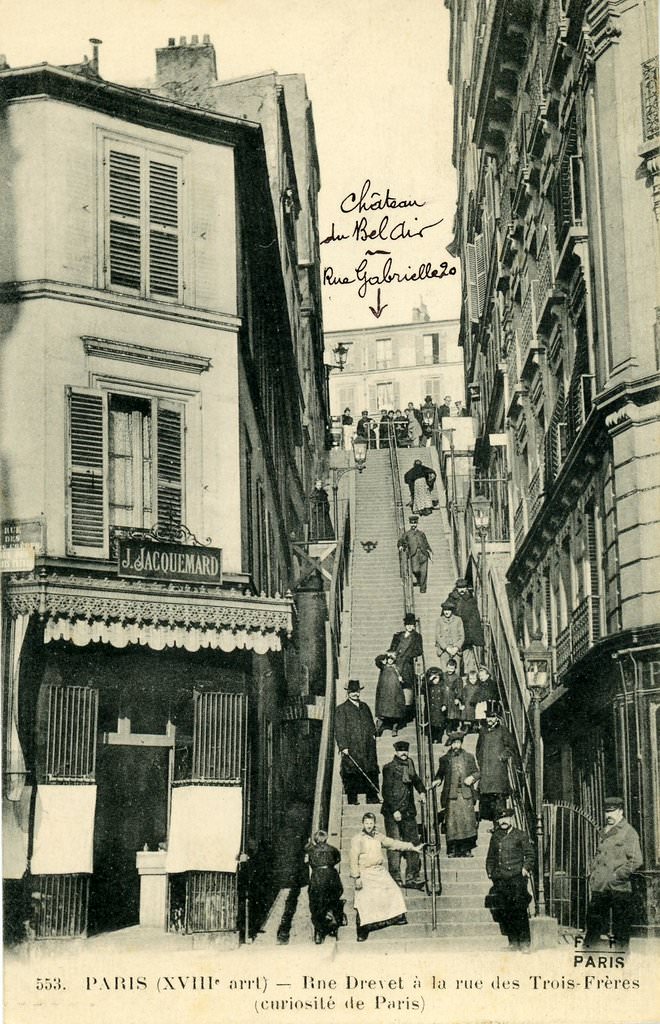 Château
du Bel Air
Rue Gabrielle 20
RUE
DES
J. JACQUEMARD
F. F.
PARIS
553. PARIS (XVIIIe arrt) — Rne Drevet à la rue des Trois-Frères
(curiosité de Paris)